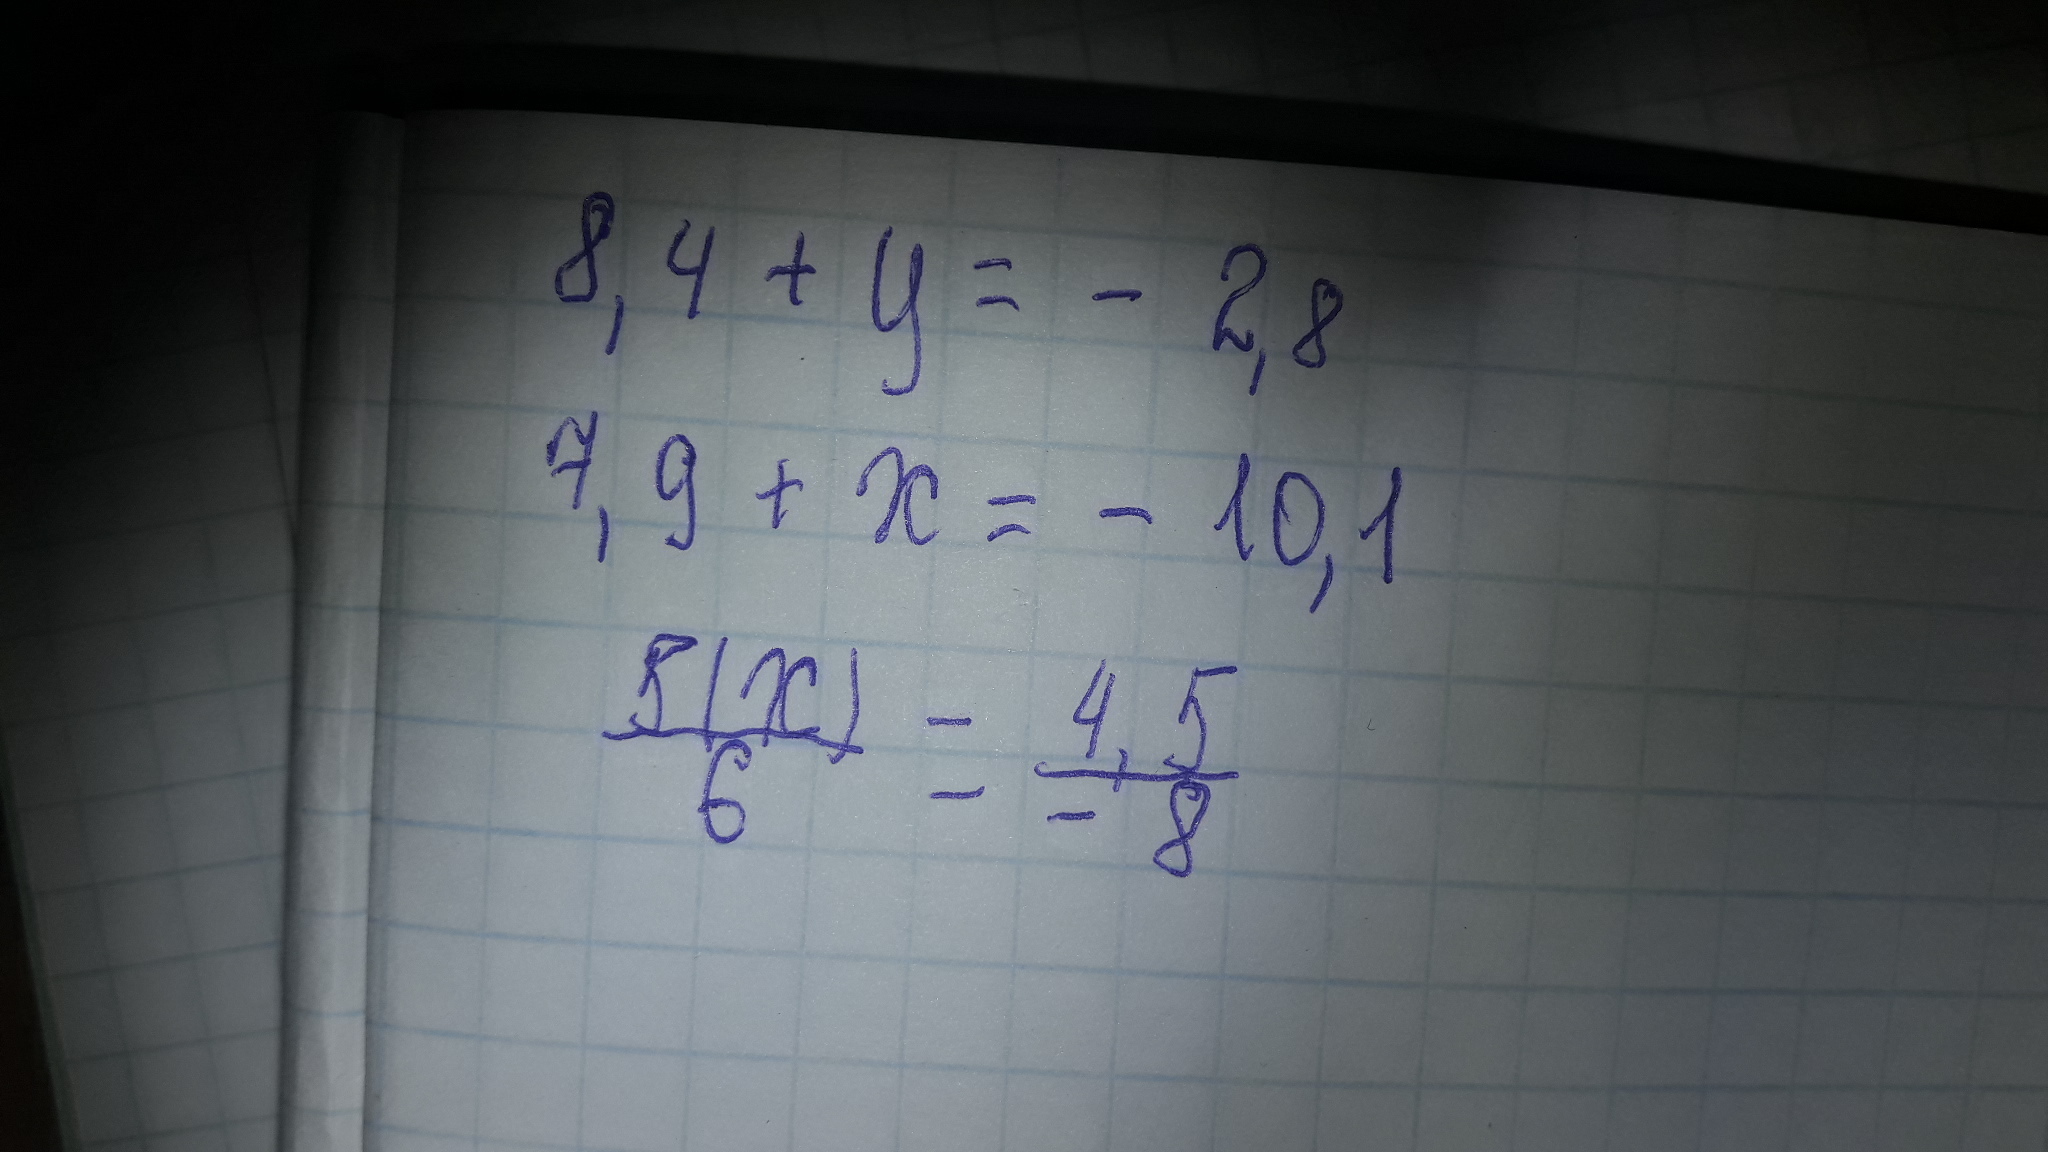 8,4 + y = - 2,8
7,9 + x = - 10,1
5|x|/6 = 4,5/-8